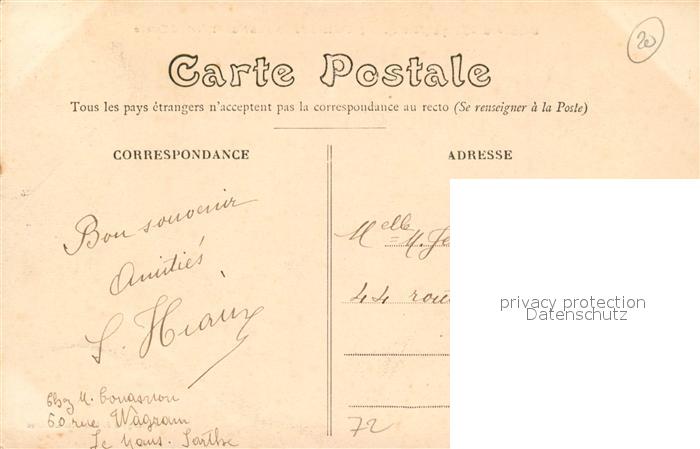 20
Carte Postale
Tous les pays étrangers n'acceptent pas la correspondance au recto (Se renseigner à la Poste)
CORRESPONDANCE
Bon souvenir
Amitiés
60 rue Wagram
Le Mans. Sarthe
ADRESSE
Melle M.
44 rou
72
privacy protection
Datenschutz